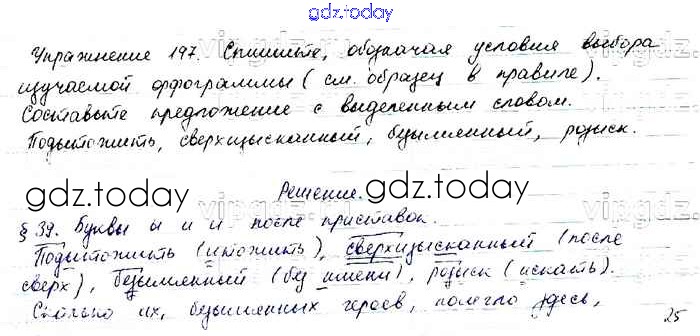 gdz.today
Упражнение 197. Спишите, обозначая условия выбора
изучаемой орфограммы (см. образец в правиле).
Составьте предложение с выделенным словом.
Подытожить, сверхизысканный, безымянный, розыск.
Решение.
gdz.today gdz.today
§ 39. Буквы ы и и после приставок.
Подытожить (итожить), сверхизысканный (после
сверх), безымянный (без имени), розыск (искать).
Сколько их, безымянных героев, полегло здесь,
25